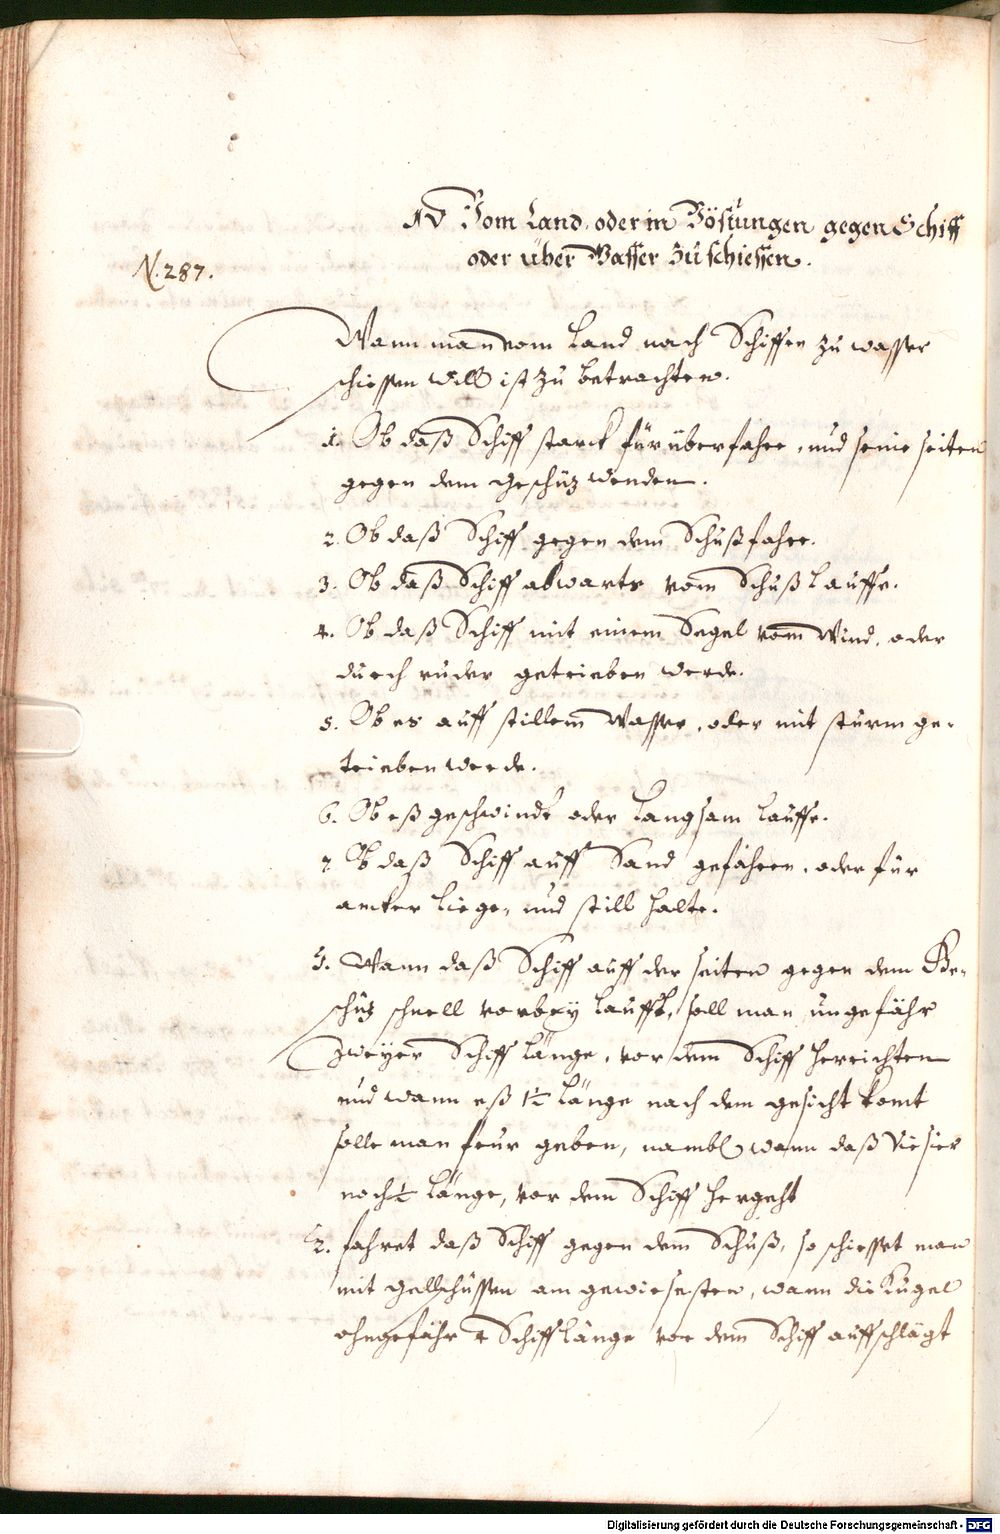 Vom Land oder in Vöstungen gegen Schiff
oder über Wasser zu schiessen.
N. 287.
Wann man vom Land nach Schiffen zu wasser
schiessen will ist zu betrachten.
1. Ob daß Schiff starck fürüberfahre, und seine seiten
gegen dem geschüz wenden.
2. Ob daß Schiff gegen dem Schuß fahre.
3. Ob daß Schiff abwarts vom Schuß lauffe.
4. Ob daß Schiff mit einem Segel vom Wind, oder
durch ruder getrieben werde.
5. Ob es auff stillem Wasser, oder mit sturm ge-
trieben werde.
6. Ob eß geschwindt oder langsam lauffe.
7. Ob daß Schiff auff Sand gefahren, oder für
ancker liege, und still halte.
Wann daß Schiff auff der seiten gegen dem Ge-
schüz schnell vorbey laufft, soll man ungefähr
zweyer Schiff länge, vor dem Schiff herrichten
und wann eß 1½ länge nach dem gesicht komt
solle man feur geben, nambl wann daß Viesier
noch ½ länge, vor dem Schiff hergeht
2. fahret daß Schiff gegen dem Schuß, so schiesset man
mit gellschüssen am gewiesesten, wann die Kugel
ohngefähr Schifflänge vor dem Schiff auffschlägt
Digitalisierung gefördert durch die Deutsche Forschungsgemeinschaft - DFG